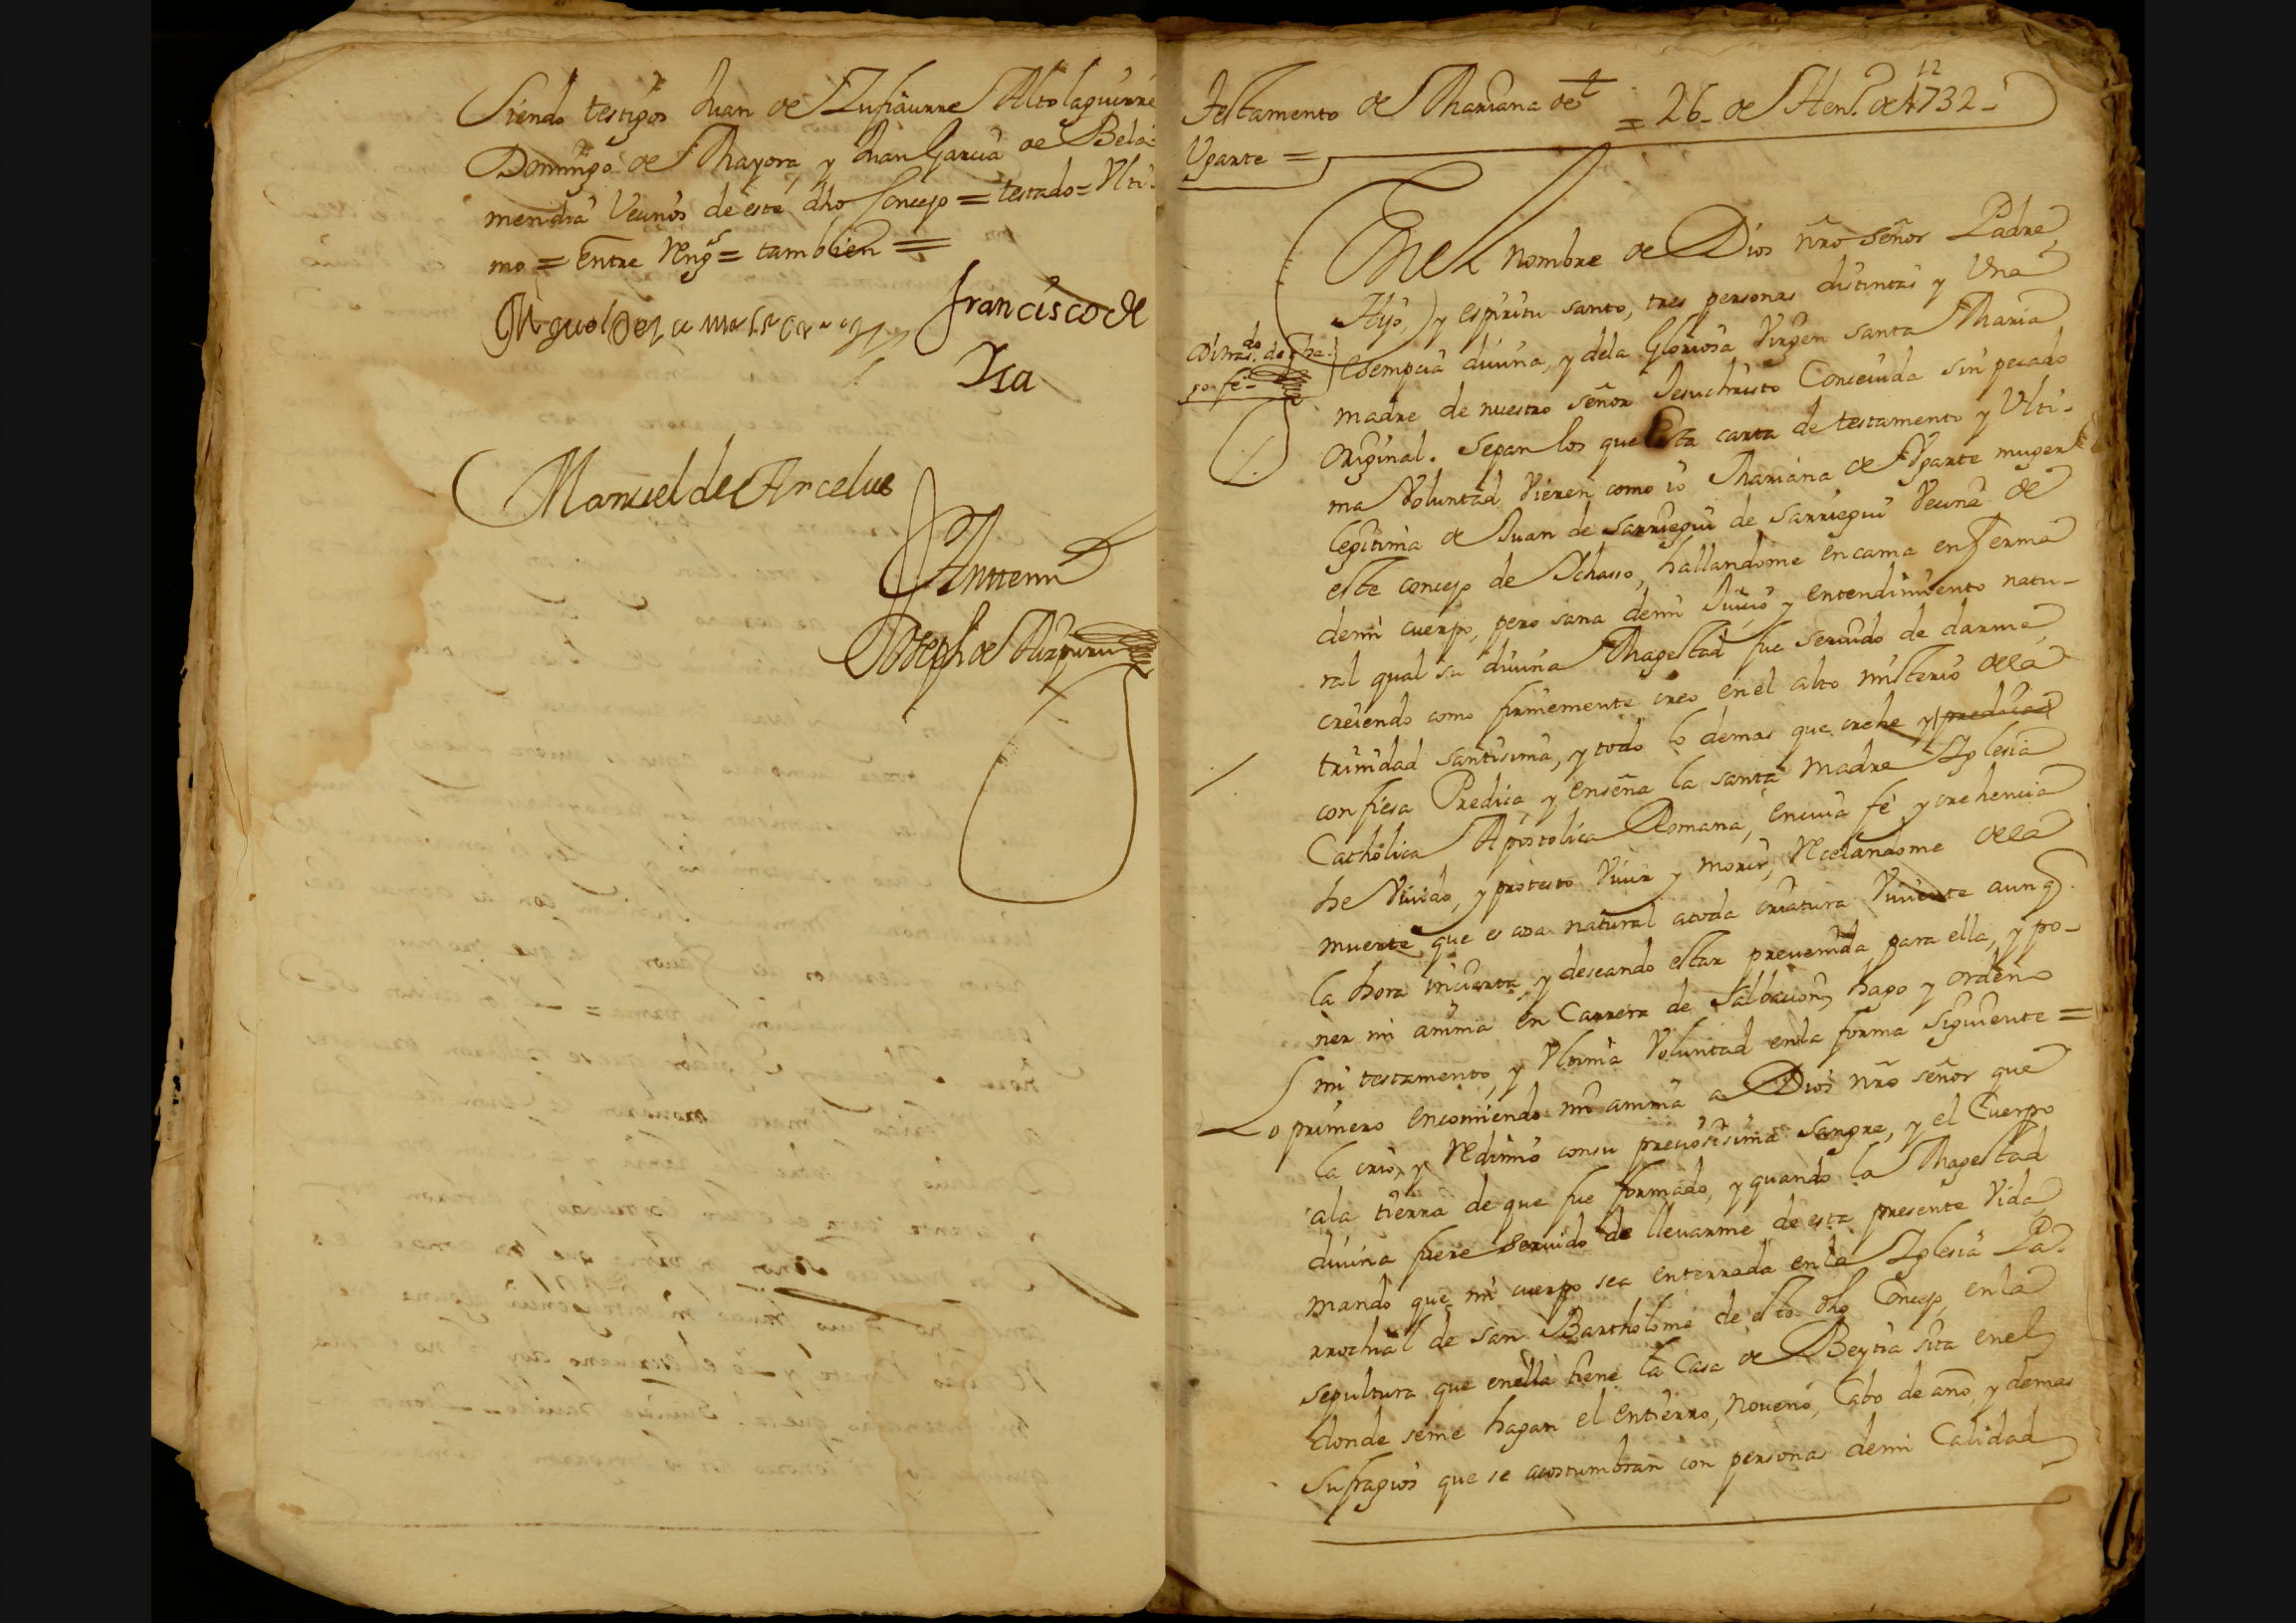 Siendo testigos Juan de Zufiaurre Altolaguirre
Domingo de Mayora, y Juan Garcia de Bela-
mendia Vecinos de este dho Concejo = testado = Vlti-
mo = Entre Reng.s = tambien =
Francisco de
Isa
Manuel de Arcelus
Anttemi
Joseph de Aizpuru
Testamento de Mariana de = 26 de Hen.o de 1732
12
Vgarte =
En el nombre de Dios nro señor Padre,
Hijo, y espiritu santo, tres personas distintas y Vna
Esempcia diuina, y dela Gloriosa Virgen santa Maria
madre de nuestro señor Jesuchristo Conceuida sin pecado
Original. Sepan los que Esta carta de testamento y Vlti-
ma Voluntad Vieren como io Mariana de Vgarte muger
legitima de Juan de Sarriegui de Sarriegui Vecina de
este concejo de Ichasso, hallandome en cama enferma
demi cuerpo, pero sana demi Juicio, y entendimiento natu-
ral qual su diuina Magestad fue seruido de darme,
creiendo como firmemente creo en el alto misterio dela
trinidad santisima, y todo lo demas que crehe y predica
confiesa Predica, y enseña la santa madre Iglesia
Catholica Apostolica Romana, en cuia fe y crehencia
he Viuido, y protesto Viuir y morir, Recelandome dela
muerte que es cosa natural atoda criatura Viuiente aunq.
la hora incierta, y deseando estar preuenida para ella, y po-
ner mi anima en Carrera de Salbacion, hago y ordeno
mi testamento, y Vltima Voluntad enla forma Siguiente =
Lo primero encomiendo mi anima a Dios nro señor que
la crio, y Redimio consu preciosisima Sangre, y el Cuerpo
ala tierra de que fue formado, y quando la Magestad
diuina fuere Seruido de lleuarme de esta presente Vida,
mando que mi cuerpo sea enterrada enla Iglesia Pa-
rrochial de San Bartholome de esto dho Concejo, enla
sepultura que enella tiene la Casa de Beytia sita enel
donde seme hagan el entierro, noueno, Cabo de año, y demas
Sufragios que se acostumbran con personas demi Calidad